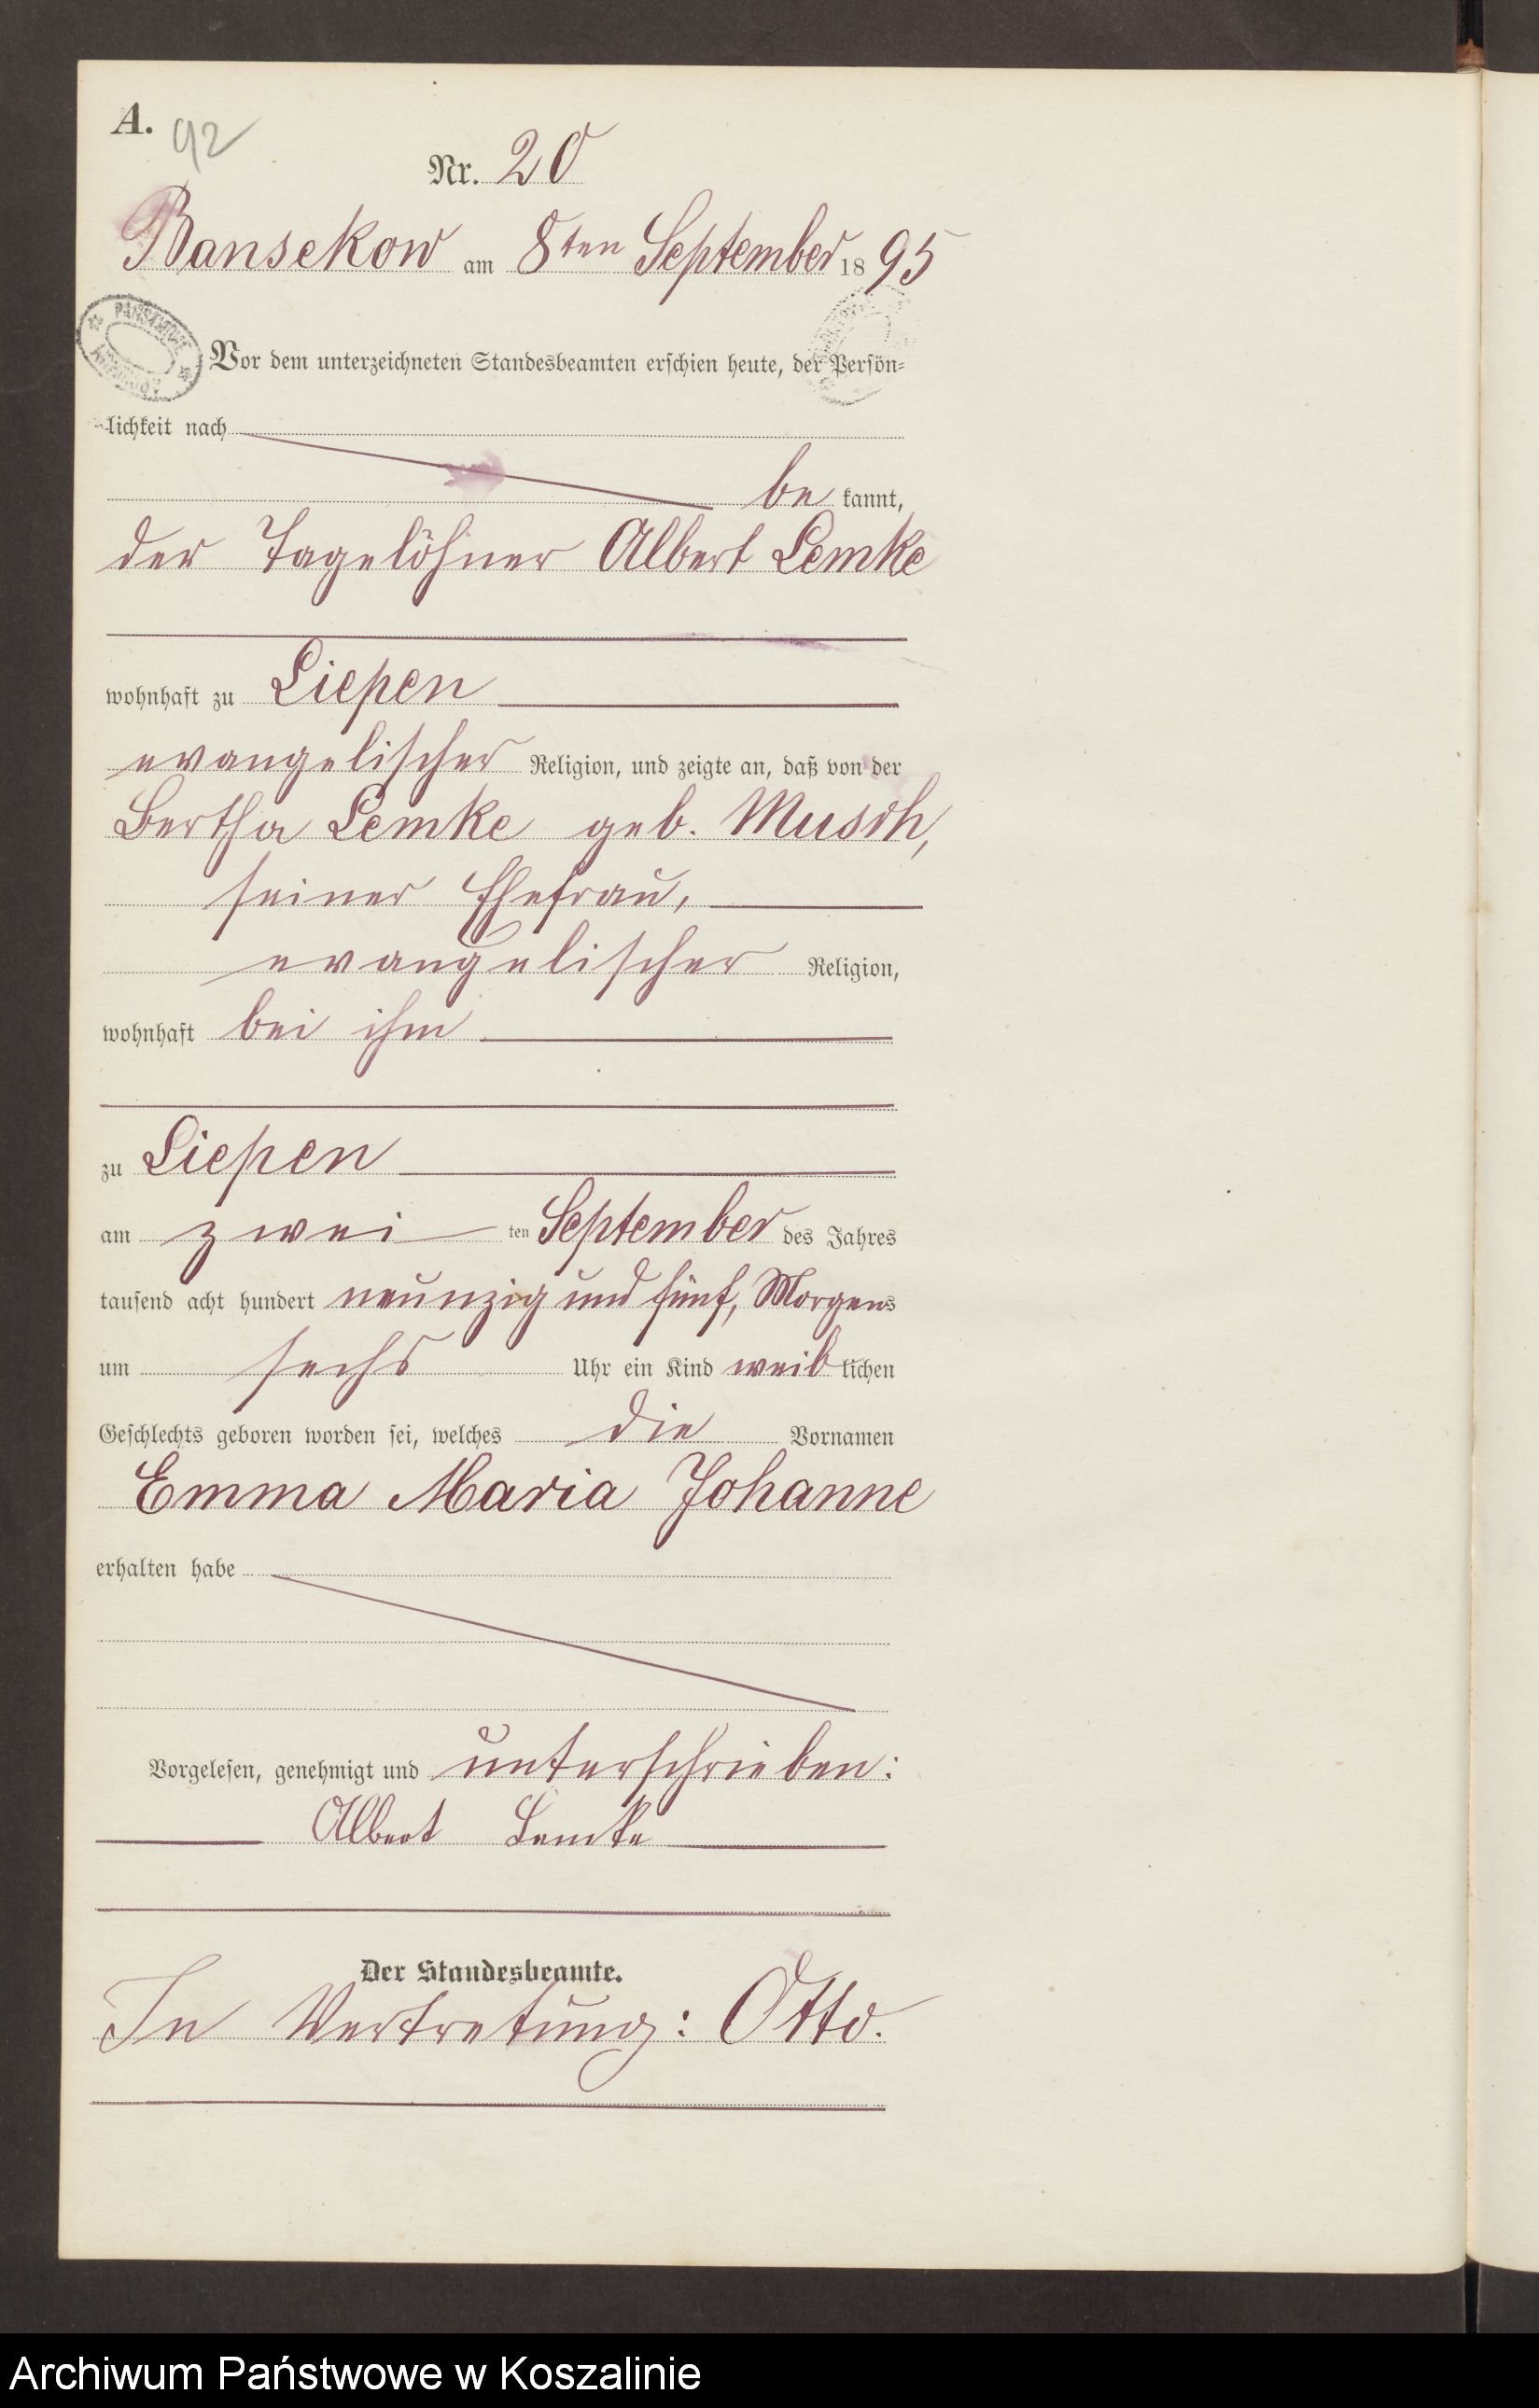 A.
92
Nr. 20
Bansekow am 8ten September 1895
Vor dem unterzeichneten Standesbeamten erschien heute, der Persön-
lichkeit nach
be kannt,
der Tagelöhner Albert Lemke
wohnhaft zu Liepen
evangelischer Religion, und zeigte an, daß von der
Bertha Lemke geb. Musch,
seiner Ehefrau,
evangelischer Religion,
wohnhaft bei ihm
zu Liepen
am zwei ten September des Jahres
tausend acht hundert neunzig und fünf, Morgens
um sechs Uhr ein Kind weiblichen
Geschlechts geboren worden sei, welches die Vornamen
Emma Maria Johanne
erhalten habe
Vorgelesen, genehmigt und unterschrieben:
Albert Lemke
Der Standesbeamte.
In Vertretung: Otto.
Archiwum Państwowe w Koszalinie